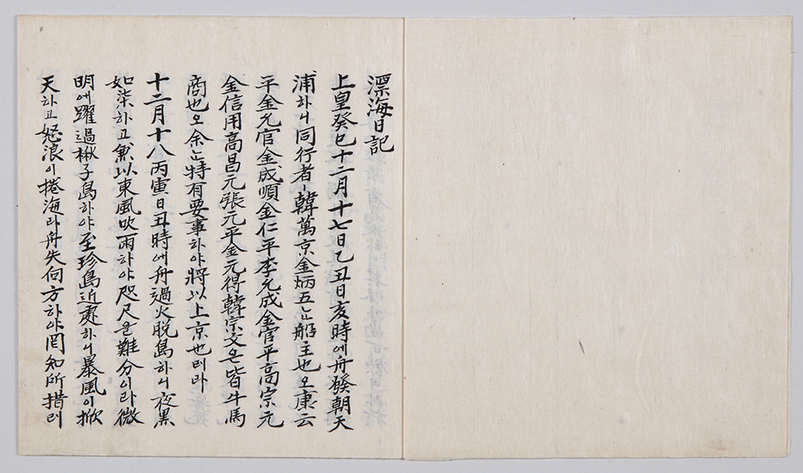 漂海日記
上皇癸巳十二月十七日乙丑日亥時에舟發朝天
浦하니同行者ㅣ韓萬京金炳五는船主也오康云
平金允官金成順金仁平李允成金官平高宗元
金信用高昌元張元平金元得韓宗文은皆牛馬
商也오余는特有要事하야將以上京也러라
十二月十八丙寅日丑時에舟過火脫島하니夜黑
如柒하고兼以東風吹雨하야咫尺을難分이라微
明에躍過楸子島하야至珍島近處하니暴風이掀
天하고怒浪이捲海라舟失向方하야罔知所措러